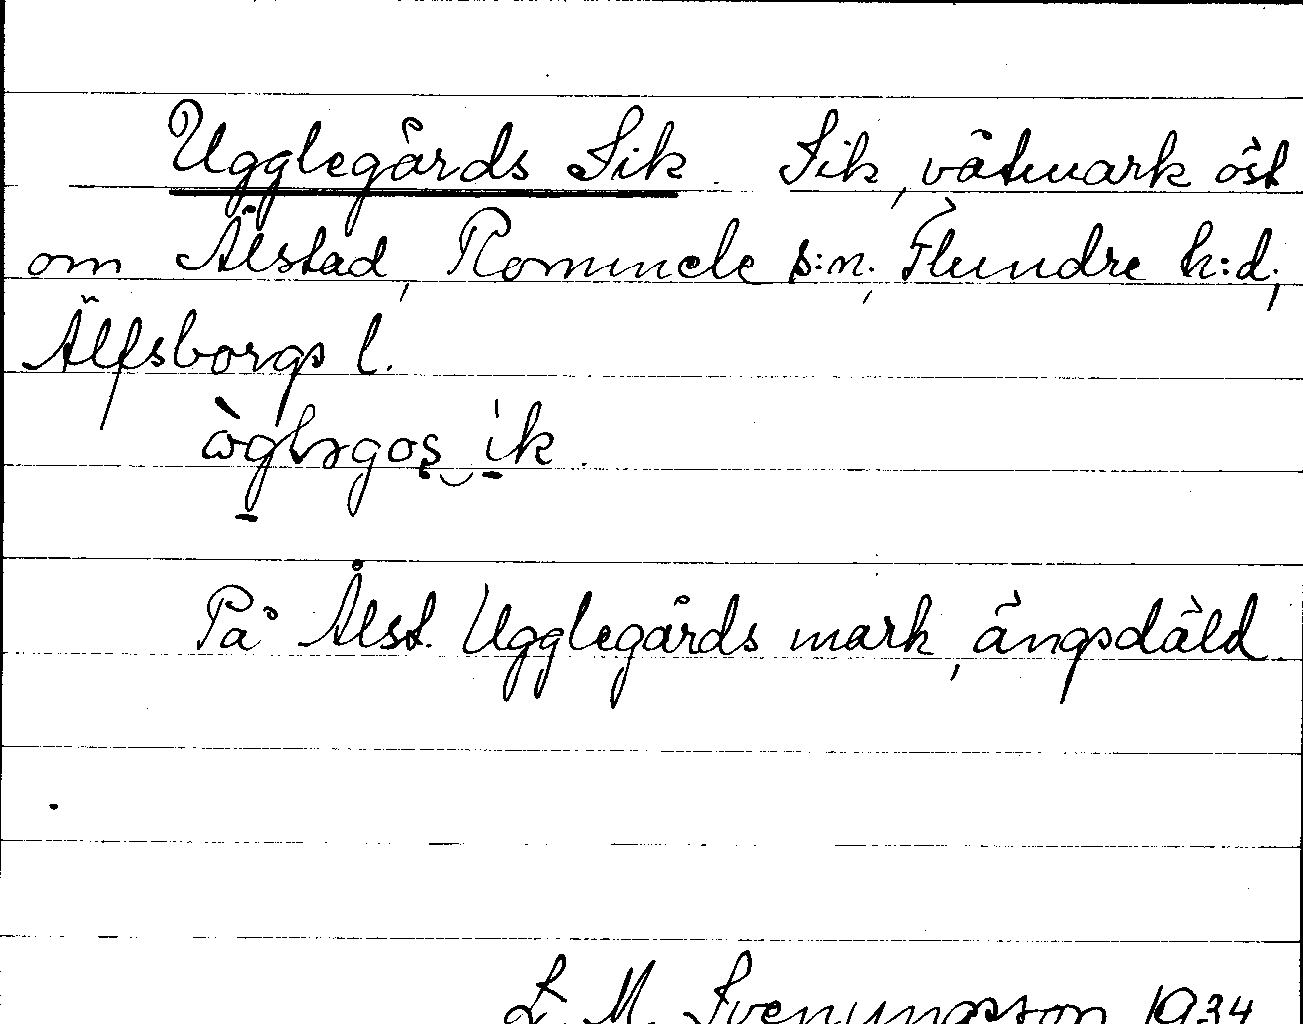 Ugglegårds Sik. Sik, våtmark öst
om Ålstad, Rommele s:n, Flundre h:d,
Älfsborgs l.
På Ålst. Ugglegårds mark, ängsdäld
L. M. Svenungsson 1934